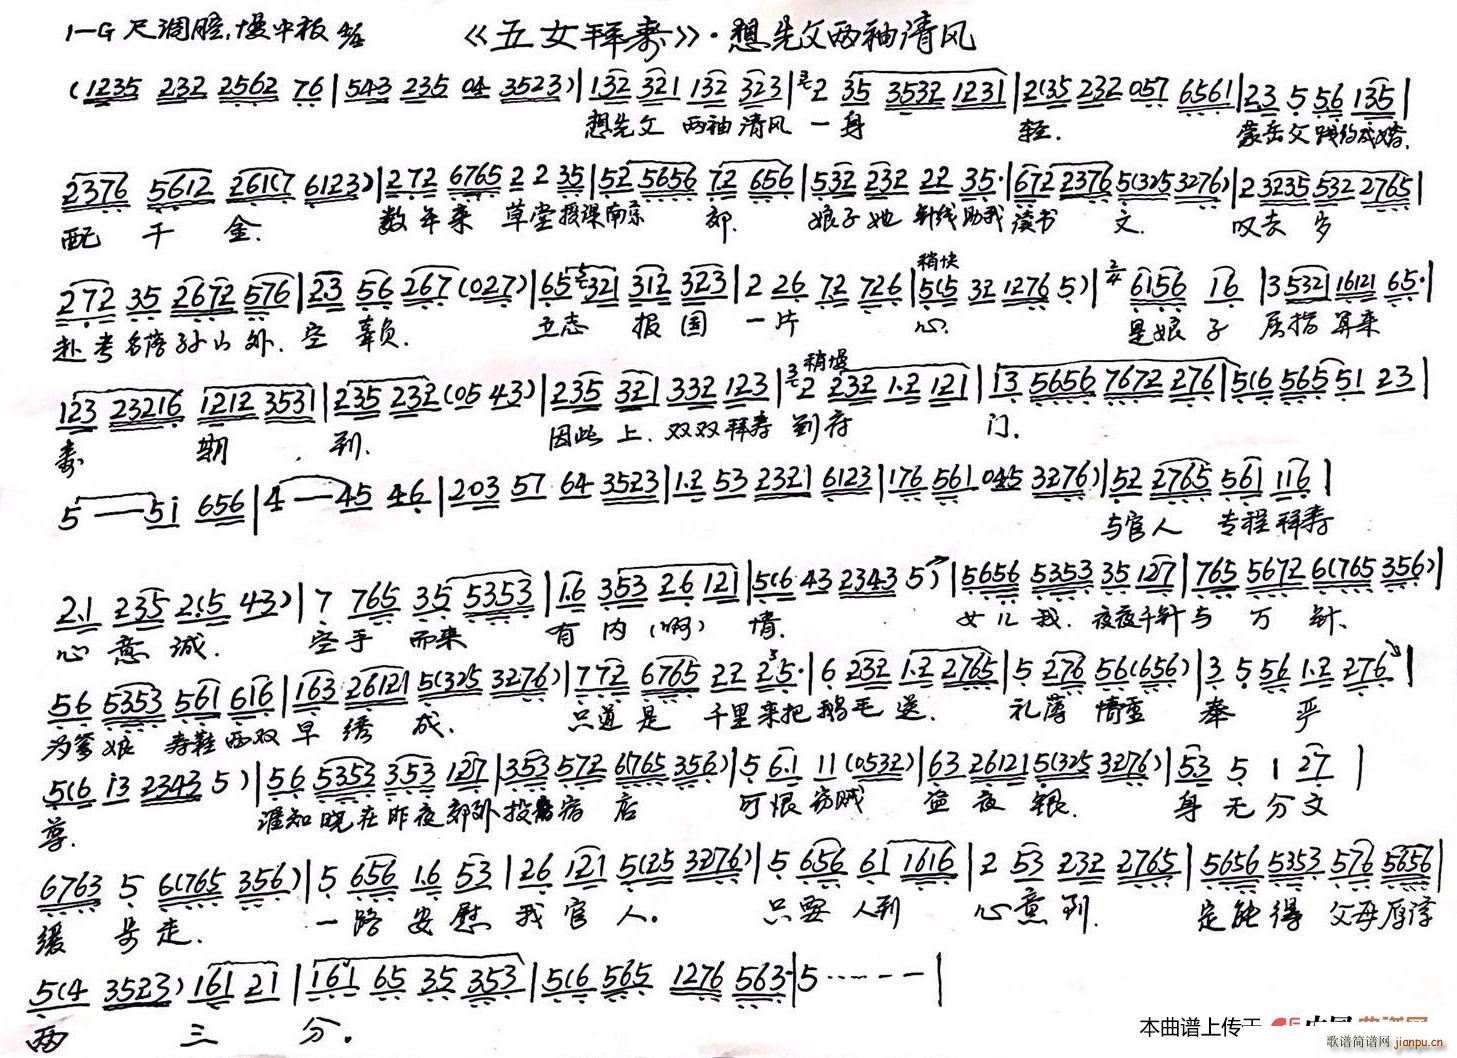 1=G 尺调腔.慢中板 4/4 《五女拜寿》·想先父两袖清风
(1235 232 2562 76|543 235 04 3523)|132 321 132 323|2 35 3532 1231|2(35 232 057 6561|23 5 56 135|
想先父 两袖清风 一身 轻. 蒙岳父践约成婚.
2376 5612 261(7 6123)|272 6765 2 2 35|52 5656 72 656|532 232 22 35·|672 2376 5(325 3276)|2 3235 532 2765|
配千金. 数年来 草堂攻课南京郊. 娘子她 针线助我读书文. 叹去岁
272 35 2672 576|23 56 267(027)|65 321 312 323|2 26 72 726|稍快 5(5 32 1276 5)|2/4 6156 16|3532 16121 65·|
赴考名落孙山外. 空辜负. 立志报国一片心. 是娘子 屈指算来
123 23216 1212 3531|235 232(05 43)|235 321 332 123|稍慢 2 232 1·2 121|13 5656 7672 276|5(6 565 51 23|
寿期.到. 因此上.双双拜寿到府门.
5——5i 656|4—45 46|203 57 64 3523|1·2 53 2321 6123|176 561 045 3276)|52 2765 561 116|
与官人 专程拜寿
2·1 235 2(5 43)|7 765 35 5353|1·6 353 26 121|5(6 43 2343 5)|5656 5353 35 127|765 5672 6(765 356)|
心意诚. 空手而来有内(啊)情. 女儿我.夜夜千针与万针.
56 5353 561 616|163 26121 5(325 3276)|772 6765 22 25·|6 232 1·2 2765|5 276 56(656)|3 5 56 1·2 276|
为爹娘 寿鞋两双早绣成. 只道是 千里来把鹅毛送. 礼薄情重奉严
5(6 i3 2343 5)|56 5353 353 127|353 572 6(765 356)|5 6·1 11(0532)|63 26121 5(325 3276)|53 5 1 27|
尊. 谁知晓在昨夜郊外投宿店 可恨窃贼盗夜银. 身无分文
6763 5 6(765 356)|5 656 1·6 53|26 121 5(25 3276)|5 656 61 1616|2 53 232 2765|5656 5353 576 5656|
缓步走. 一路安慰我官人。 只要人到心意到. 定能得父母厚谆
5(4 3523)161 21|161 65 35 353|5(6 565 1276 563·|5······—|
两三分。
本曲谱上传于
歌谱简谱网 jianpu.cn